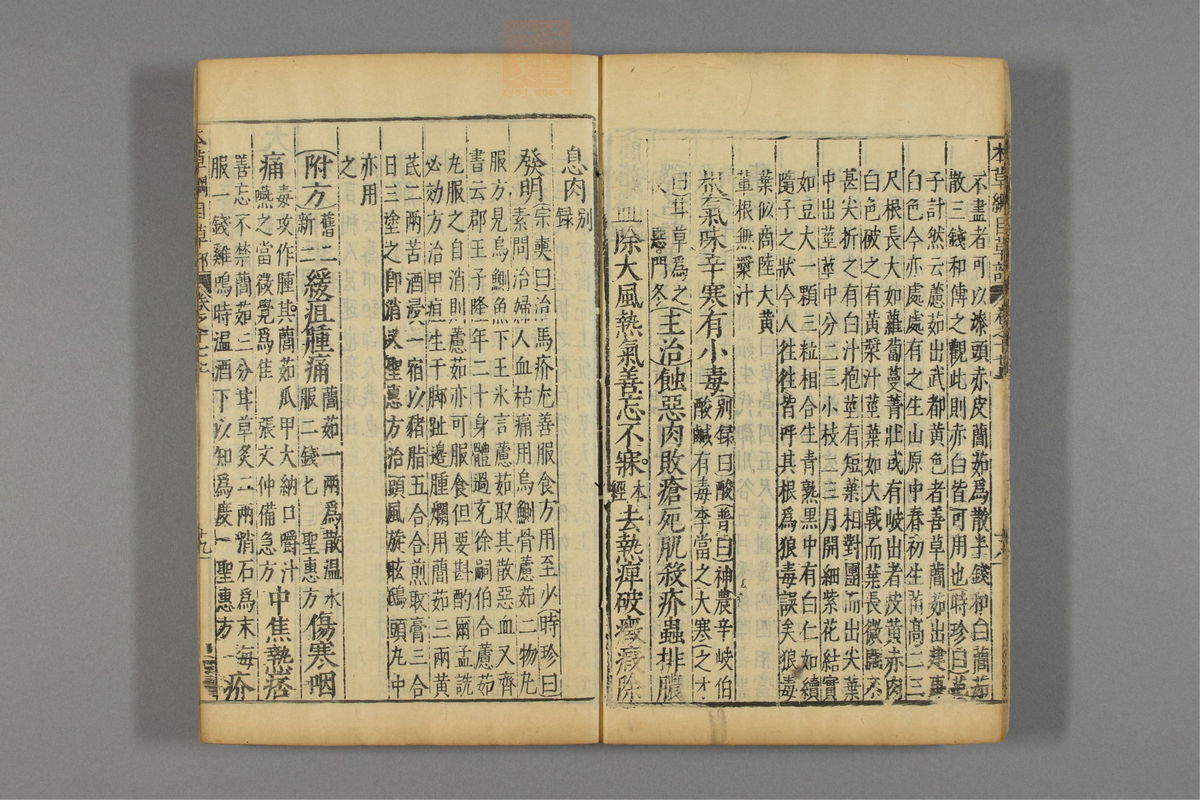 本草綱目草部
不盡者可以漆頭赤皮䕡茹爲散半錢和白䕡茹
散三錢和傅之觀此則赤白皆可用也時珍曰范
子計然云藘茹出武都黄色者善草䕡茹出建康
白色今亦處處有之生山原中春初生苗高二三
尺根長大如蘿蔔蔓菁狀或有岐出者皮黄赤肉
白色破之有黄漿汁莖葉如大戟而葉長微闊不
甚尖折之有白汁抱莖有短葉相對團而出尖葉
中出莖莖中分二三小枝二三月開細紫花結實
如豆大一顆三粒相合生青熟黑中有白仁如續
隨子之狀今人往往皆呼其根爲狼毒誤矣狼毒
葉似商陸大黄
輩根無漿汁
根氣味辛寒有小毒
别録曰酸普曰神農辛岐伯
酸鹹有毒李當之大寒之才
曰甘草爲之
惡門冬
主治蝕惡肉敗瘡死肌殺疥蟲排膿
血除大風熱氣善忘不寐
本
經
去熱痺破癥瘕除
息肉
别
録
發明
宗奭曰治馬疥尤善服食方用至少時珍曰
素問治婦人血枯痛用烏鰂骨藘茹二物丸
服方見烏鰂魚下王氷言藘茹取其散惡血又齊
書云郡王子隆年二十身體過充徐嗣伯合藘茹
丸服之自消則藘茹亦可服食但要斟酌爾孟詵
必効方治甲疽生于脚趾邊腫爛用䕡茹三兩黄
芪二兩苦酒浸一宿以豬脂五合合煎取膏三合
日三塗之即消又聖惠方治頭風旋眩鴟頭丸中
亦用
之
附方
舊二
新二
緩疽腫痛
䕡茹一兩爲散温水
服二錢匕 聖惠方
傷寒咽
痛
毒攻作腫䕡茹爪甲大納口嚼汁
嚥之當微覺爲佳 張文仲備急方
中焦熱痞
善忘不禁䕡茹三分甘草炙二兩消石爲末每
服一錢雞鳴時温酒下以知爲度 聖惠方
疥
本草綱目草部
十九